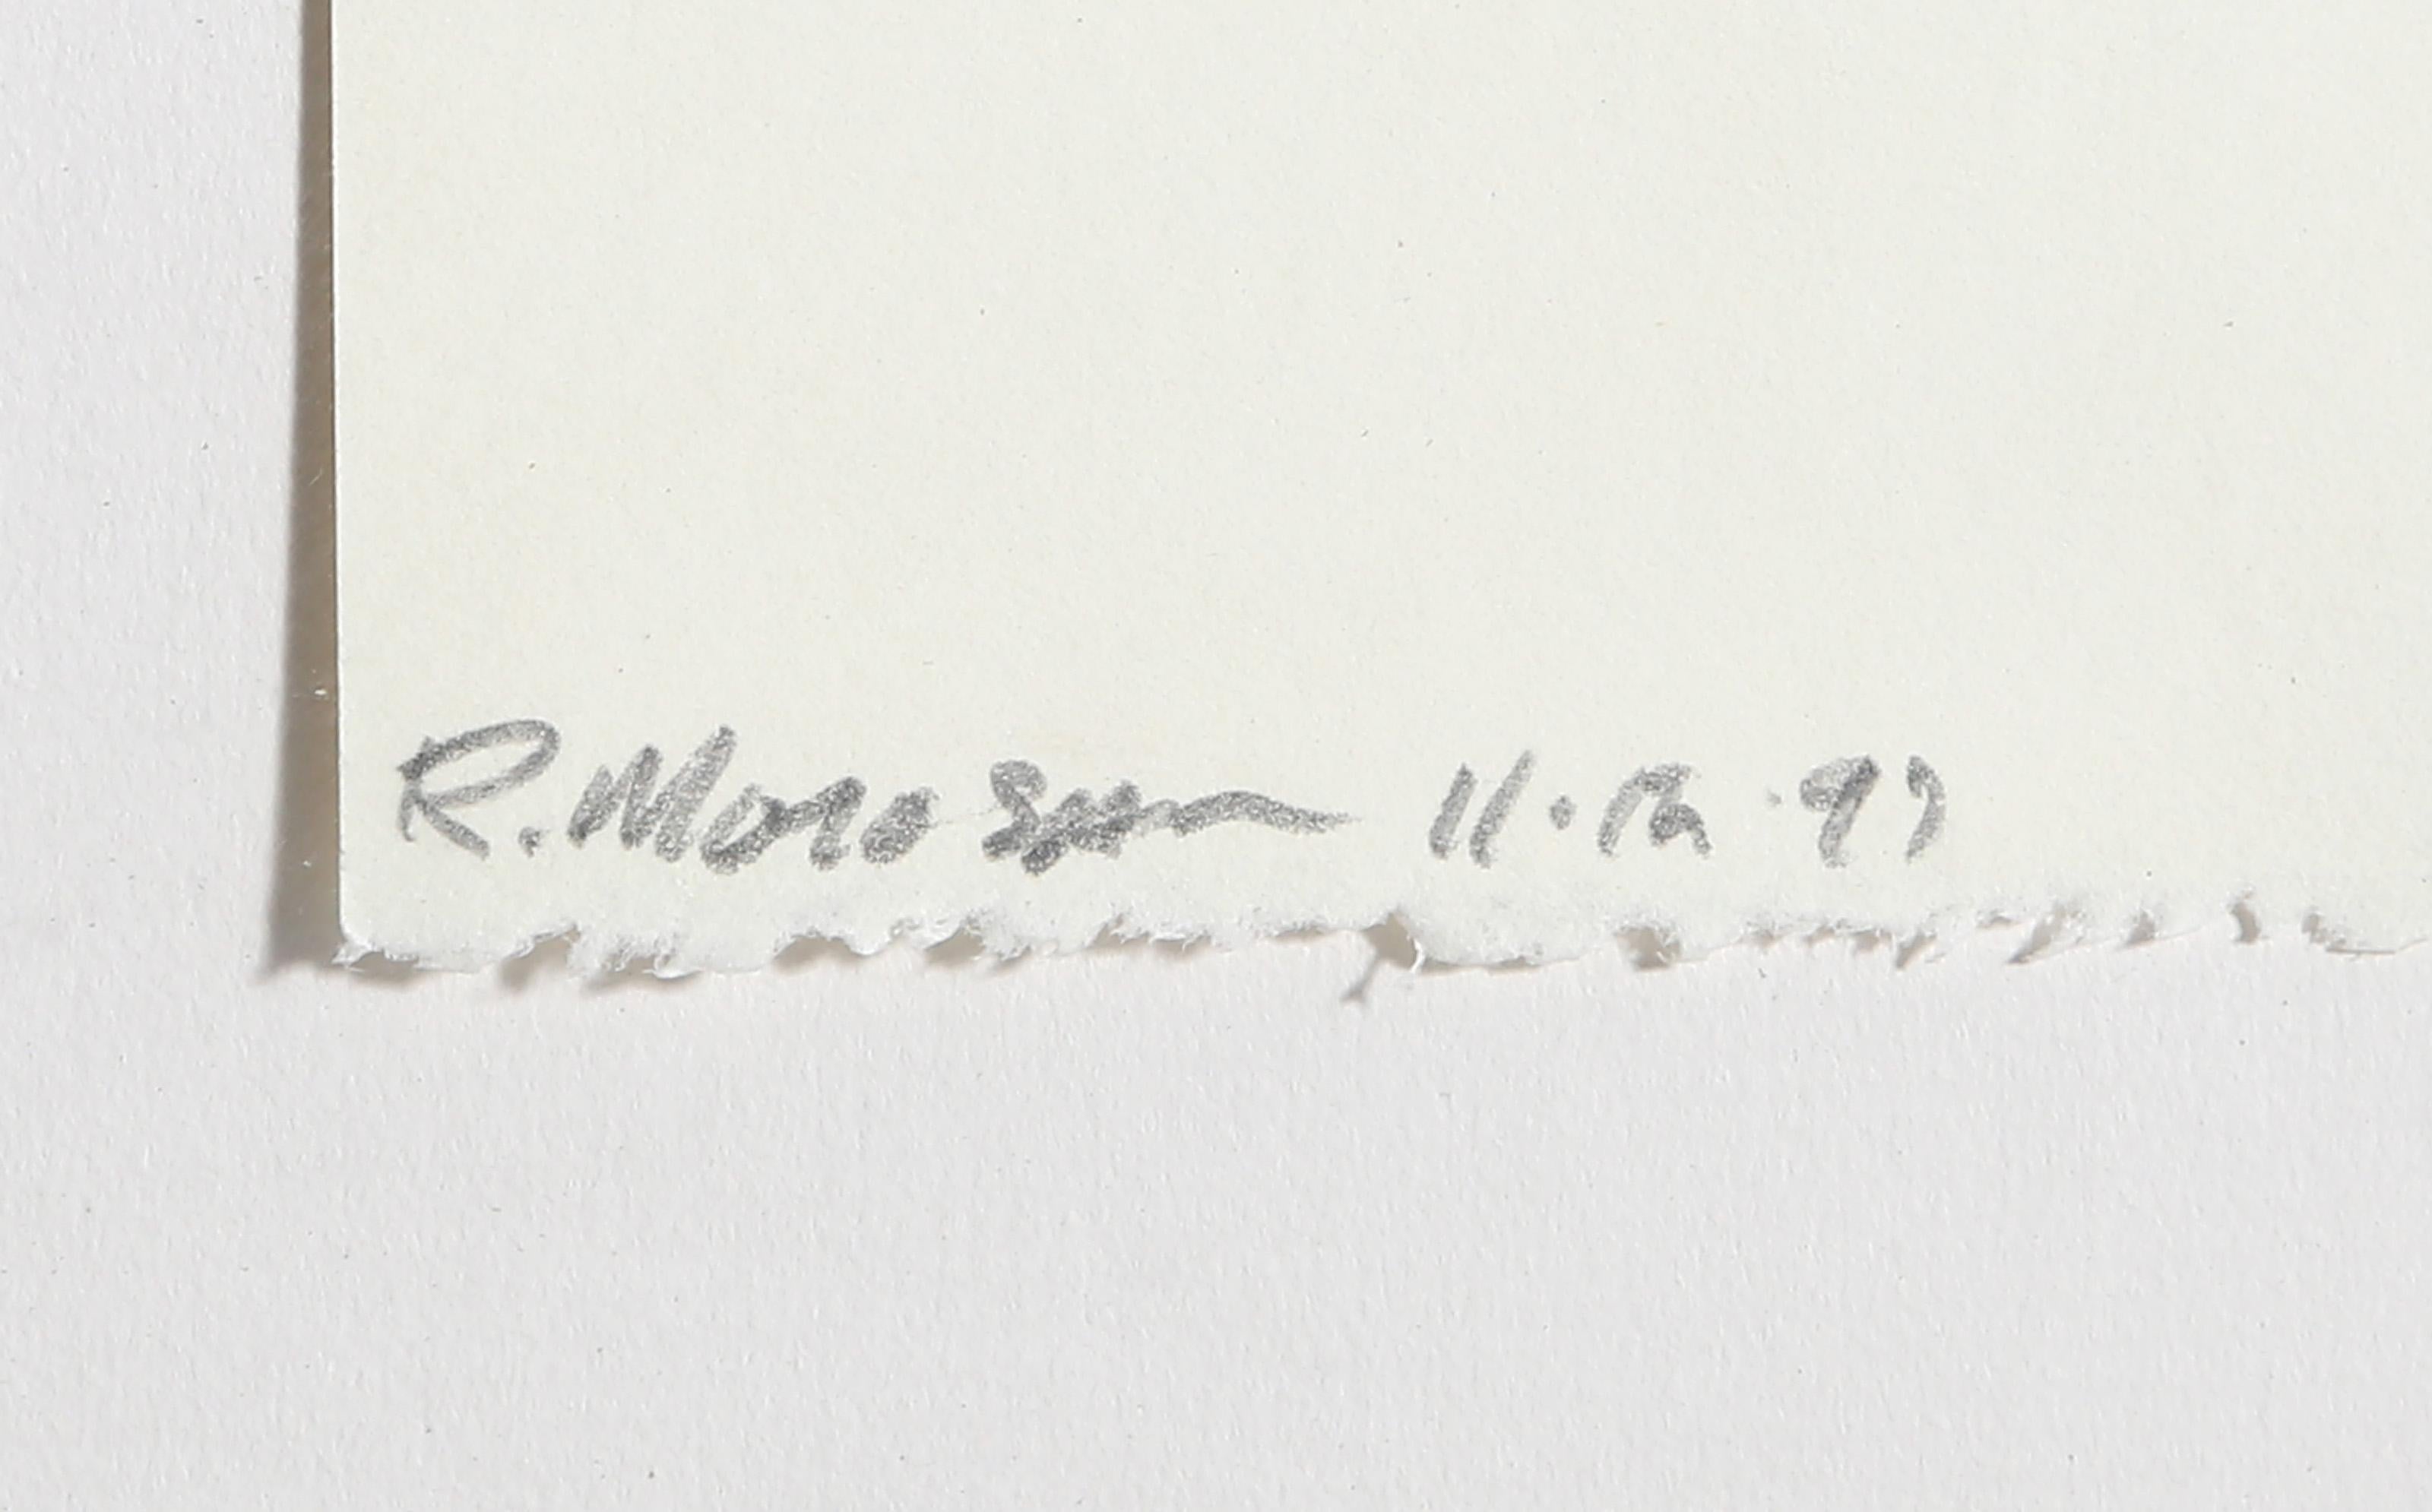 R. Morosan 11.12.97